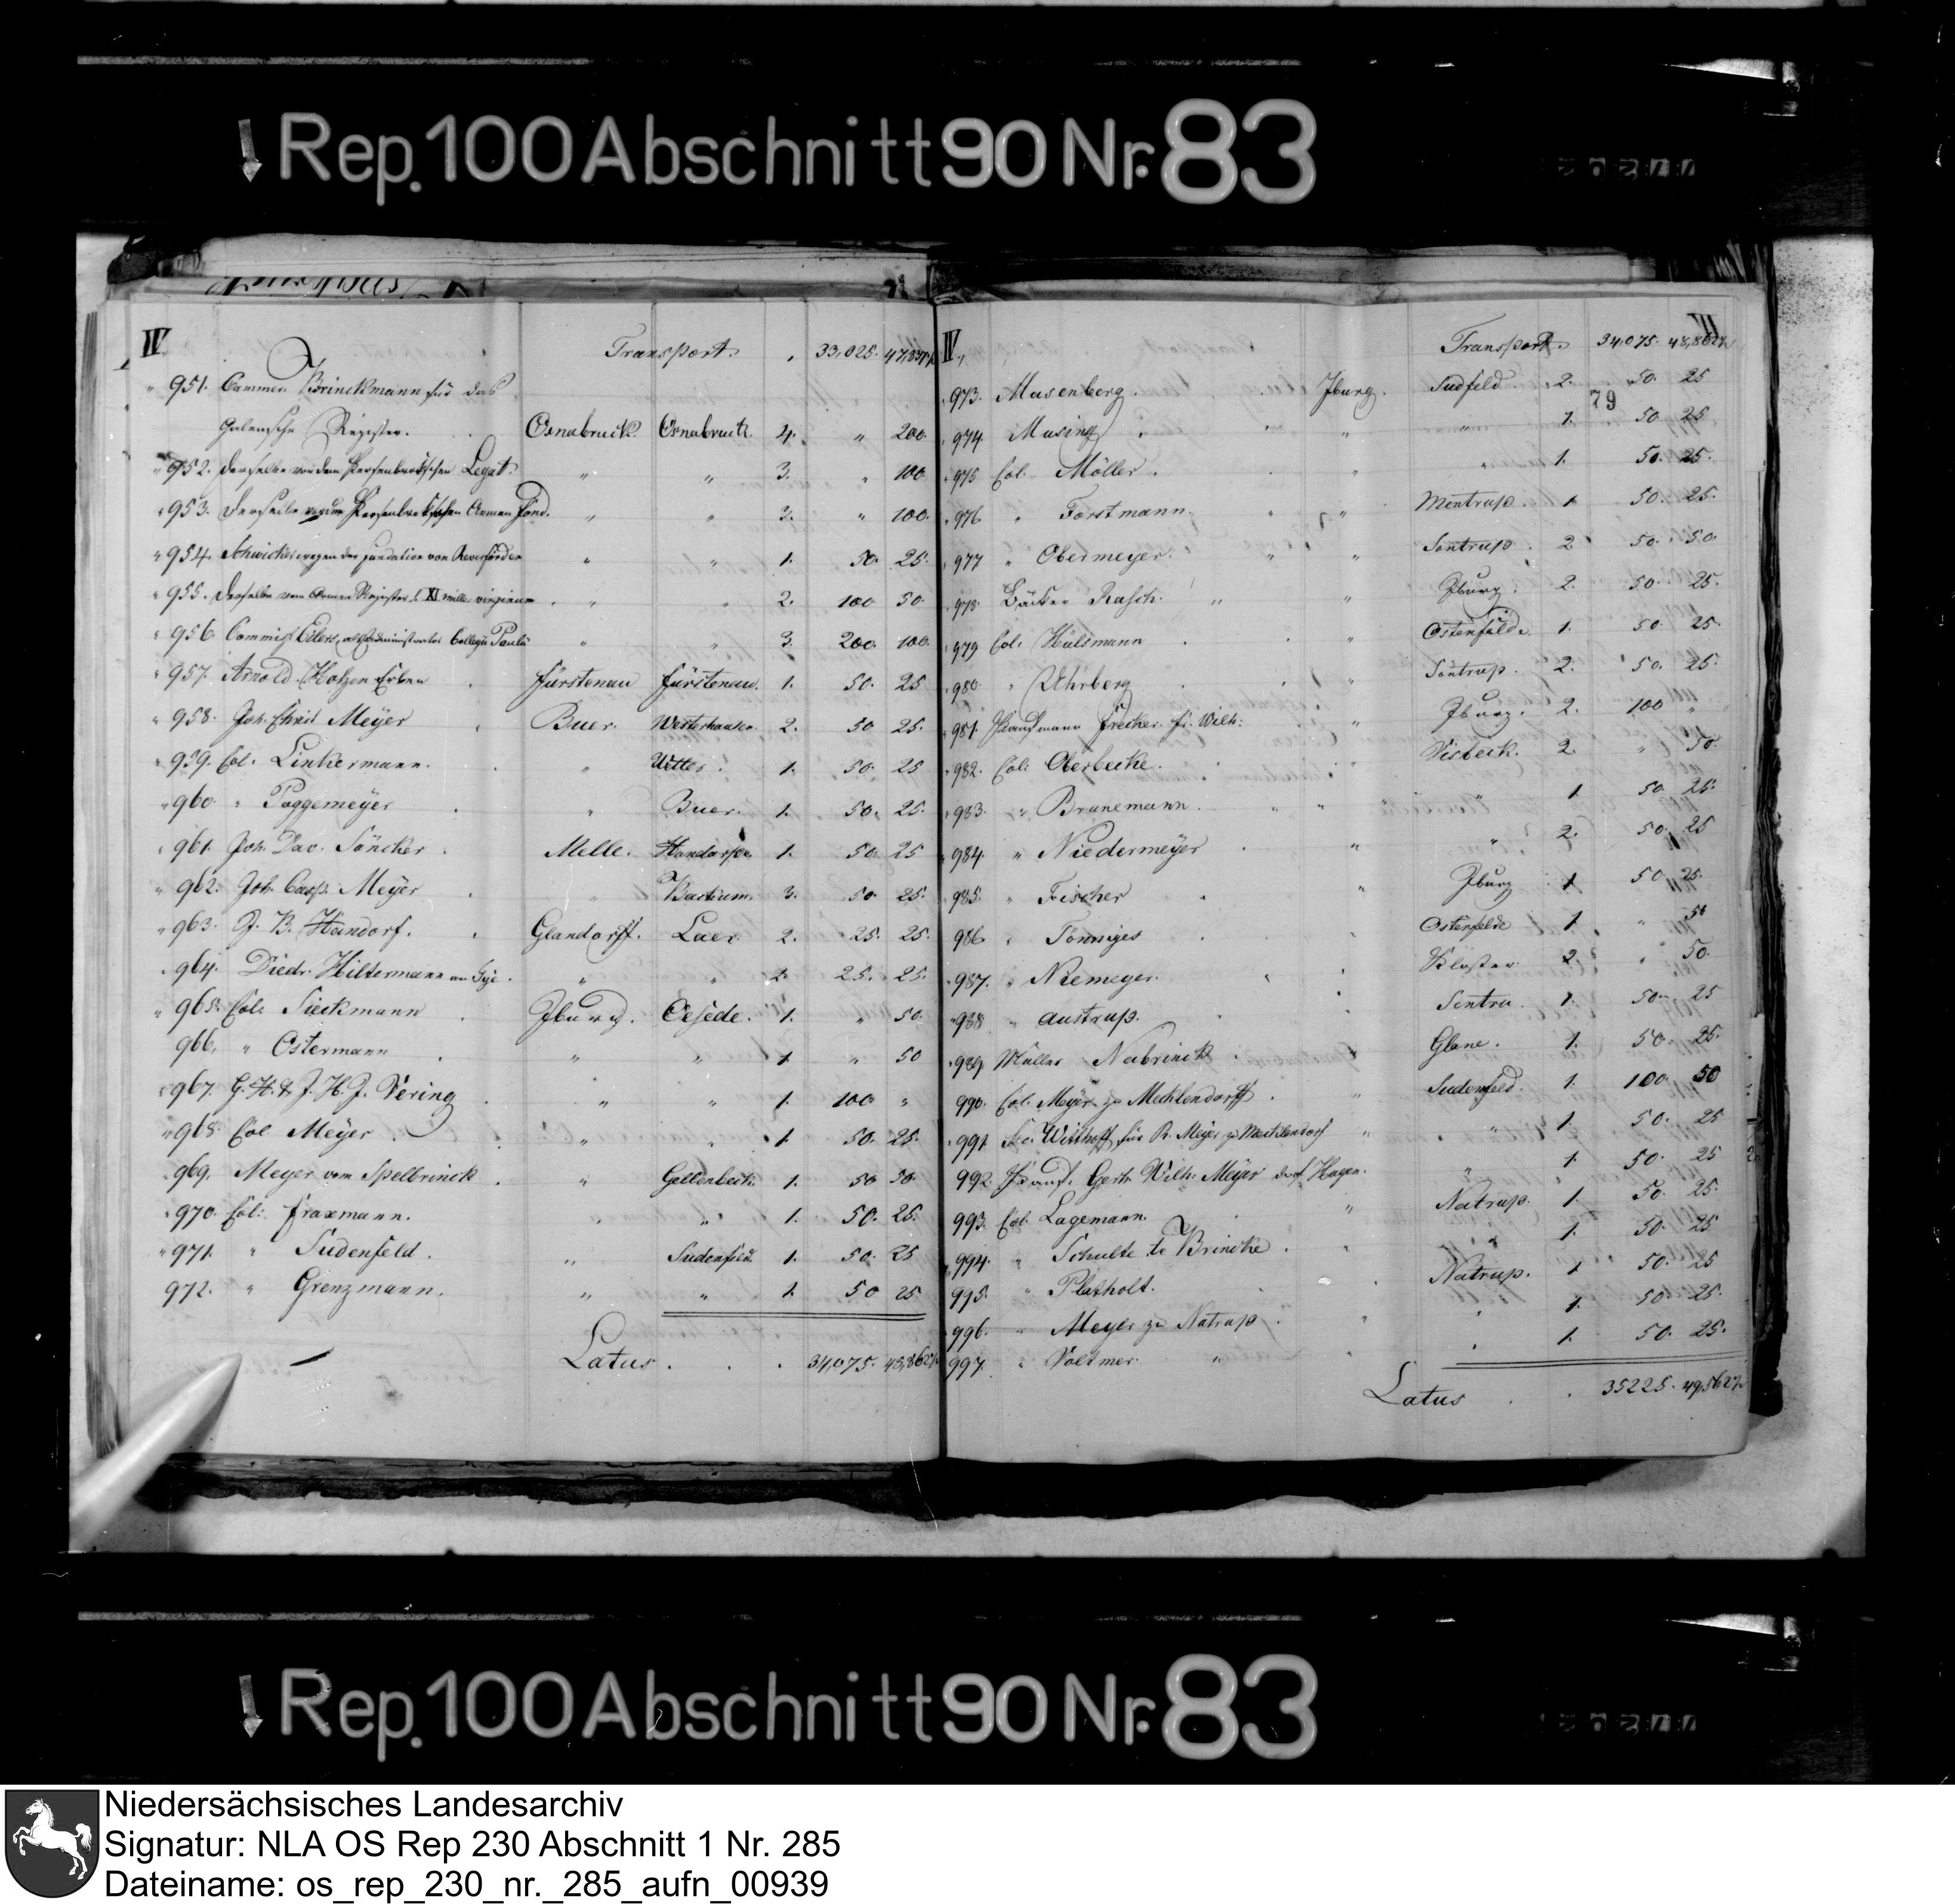 Rep. 100 Abschnitt 90 Nr. 83
IV.
Transport. . 33,025. 47,837½
951. Cammer. Brinckmann für das
Galensche Register. Osnabruck. Osnabruck. 4. " 200.
952. Derselbe von dem Legat. " " 3. " 100
953. Derselbe Armen Fond. " " 3. " 100.
954. Schwicker wegen der fundation von " " 1. 50. 25.
955. Derselbe vom Armen Register XI mille virginum " " 2. 100 50.
956. Commiss. Eilers, als Administrator Collegii Paulini " " 3. 200. 100.
957. Arnold Hotzen Erben Fürstenau Fürstenau. 1. 50. 25
958. Joh. Christ Meyer Buer. Westerhausen 2. 50 25.
959. Col. Linkermann. " 1. 50. 25
960. " Poggemeyer " Buer. 1. 50. 25.
961. Joh. Dav. Söncker. Melle. 1. 50. 25
962. Joh. Casp. Meyer " Backum. 3. 50. 25.
963. J. B. Handorf. Glandorff. Laer. 2. 25. 25.
964. Diedr. Hiltermann " " 2. 25. 25.
965. Col. Sieckmann Iburg. Oesede. 1. " 50.
966. " Ostermann " " 1 " 50
967. G. H. & J. H. J. Vering " " 1. 100 "
968. Col Meyer " " 1. 50. 25.
969. Meyer vom Spelbrinck " Gellenbeck. 1. 50 50.
970. Col: Fraxmann. " " 1. 50. 25.
971. " Sudenfeld. " Sudenfeld. 1. 50. 25
972. " Grenzmann. " " 1. 50 25
Latus . . . 34,075. 48,862½
IV.
Transport. 34,075. 48,862½
79
973. Musenberg. Iburg. Sudfeld. 2. 50. 25
974 Musing " " 1. 50 25
975 Col. Möller. " " 1. 50. 25.
976. " Forstmann. " Mentrup. 1 50. 25.
977 " Obermeyer. " Sentrup. 2 50. 50.
978. Bäcker Rasch. " Iburg. 2. 50. 25.
979 Col. Hülsmann " Ostenfelde 1. 50. 25.
980. " Uhrberg " Sentrup. 2. 50. 25.
981. Kaufmann Frecker. Fr. Wilh: " Iburg. 2. 100 "
982. Col: Oberbecke. " Visbeck. 2. " 50.
983. " Brunemann. " " 1 50. 25.
984. " Niedermeyer " " 2. 50. 25
985. " Fischer " Iburg 1 50 25.
986 " Tönniges Ostenfelde 1. " 50
987. " Niemeyer. Kloster 2. " 50.
988 " Austrup. Sentru. 1. 50. 25
989 Müller Nabrinck Glane. 1. 50. 25.
990. Col. Meyer zu Mecklendorff " Sudenfeld. 1. 100. 50
991. Witthoff für R. Meyer zu Mecklendorf " " 1. 50. 25
992. Kauf. Gerh. Wilh. Meyer dorf Hagen. " 1. 50. 25
993. Col Lagemann. " Natrup. 1. 50. 25.
994. " Schulte to Brincke " " 1. 50. 25
995. " Platholt. Natrup. 1 50. 25
996. " Meyer zu Natrup " " 1. 50. 25.
997. " Voltmer. " " 1. 50. 25.
Latus . 35225. 49,562½
Rep. 100 Abschnitt 90 Nr. 83
Niedersächsisches Landesarchiv
Signatur: NLA OS Rep 230 Abschnitt 1 Nr. 285
Dateiname: os_rep_230_nr._285_aufn_00939